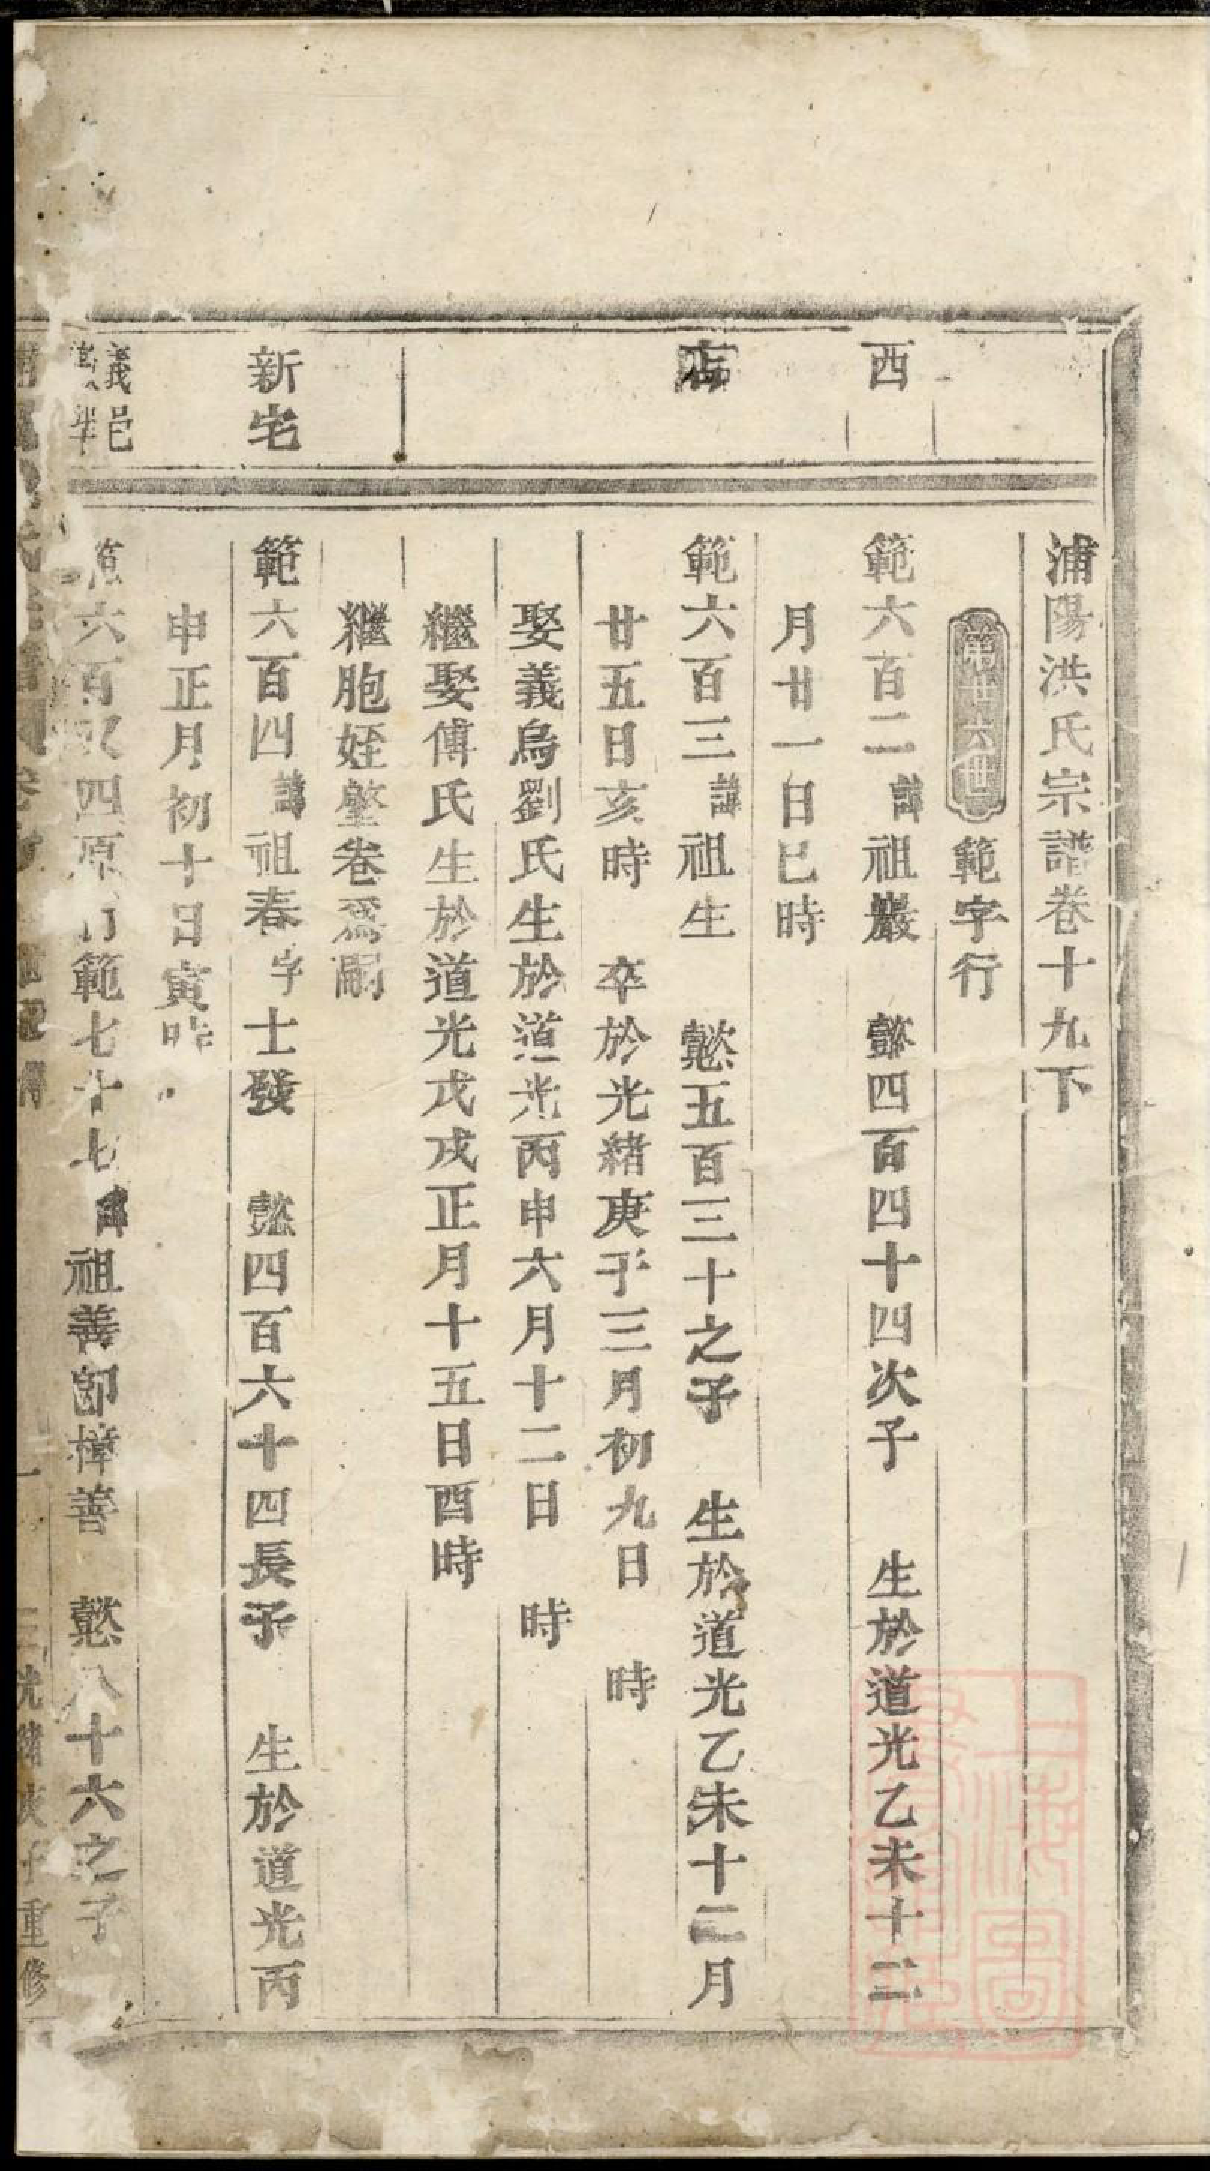 浦陽洪氏宗譜卷十九下
第廿六世 範字行
西
範六百二 諱 祖巖 懿四百四十四次子 生於道光乙未十二
月廿一日巳時
店
範六百三 諱 祖生 懿五百三十之子 生於道光乙未十二月
廿五日亥時 卒於光緒庚子三月初九日 時
娶義烏劉氏生於道光丙申六月十二日 時
繼娶傅氏生於道光戊戌正月十五日酉時
繼胞姪肇卷爲嗣
新宅
範六百四 諱 祖春 字 士發 懿四百六十四長子 生於道光丙
申正月初十日寅時
義邑
範六百又四原行範七十七 諱 祖善即樟善 懿八十六之子
光緒 重修
上海圖書館藏